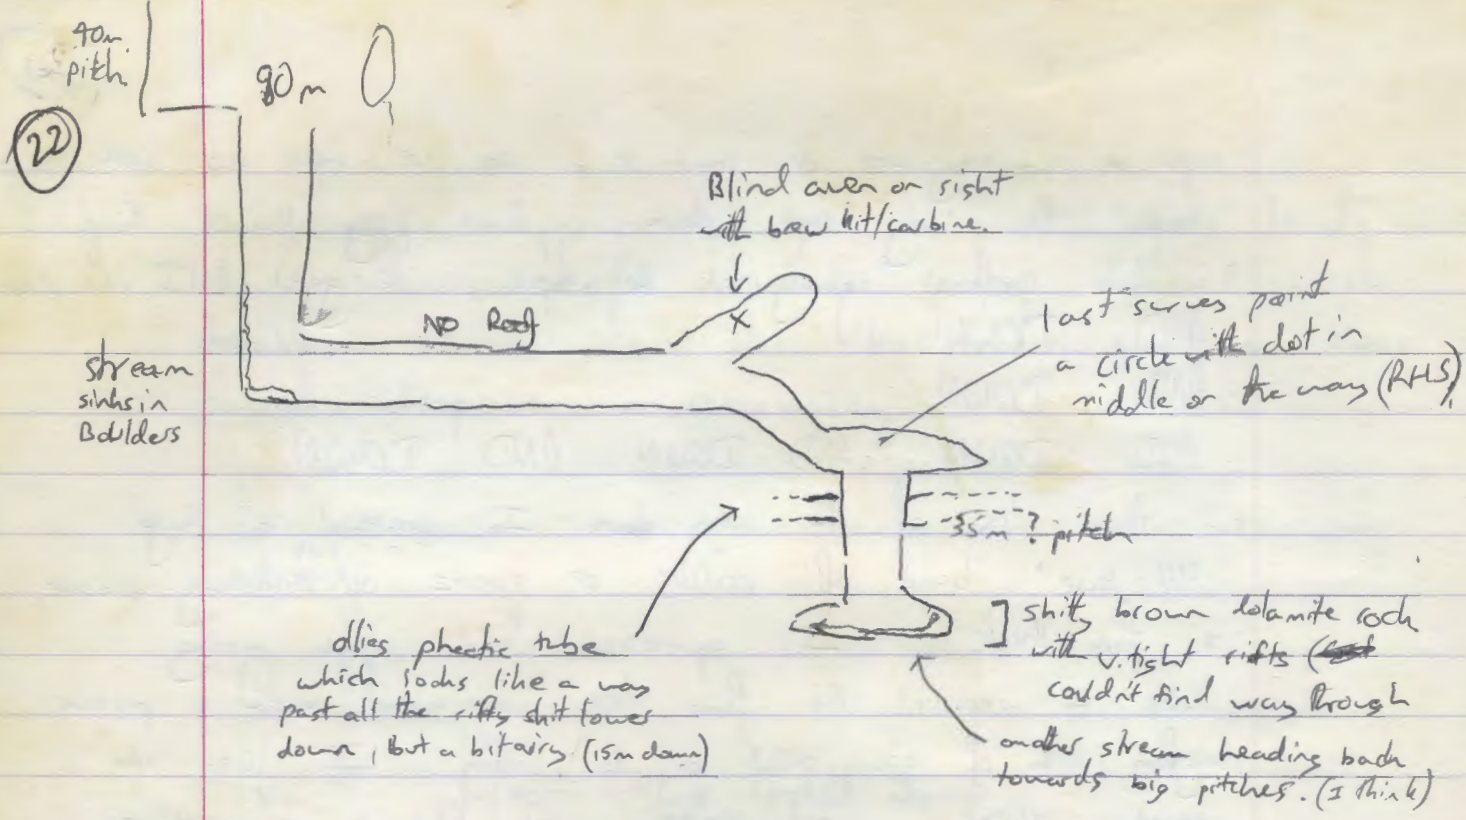 40m
pitch
90m
22
Blind aven on right
with brew kit/carbine.
NO Roof
stream
sinks in
Boulders
last survey point
a circle with dot in
middle on the way (RHS)
35m? pitch
ollies phreatic tube
which looks like a way
past all the rifty shit lower
down, but a bit airy (15m down)
shitty brown dolamite rock
with v.tight rifts
couldn't find way through
another stream heading back
towards big pitches. (I think)